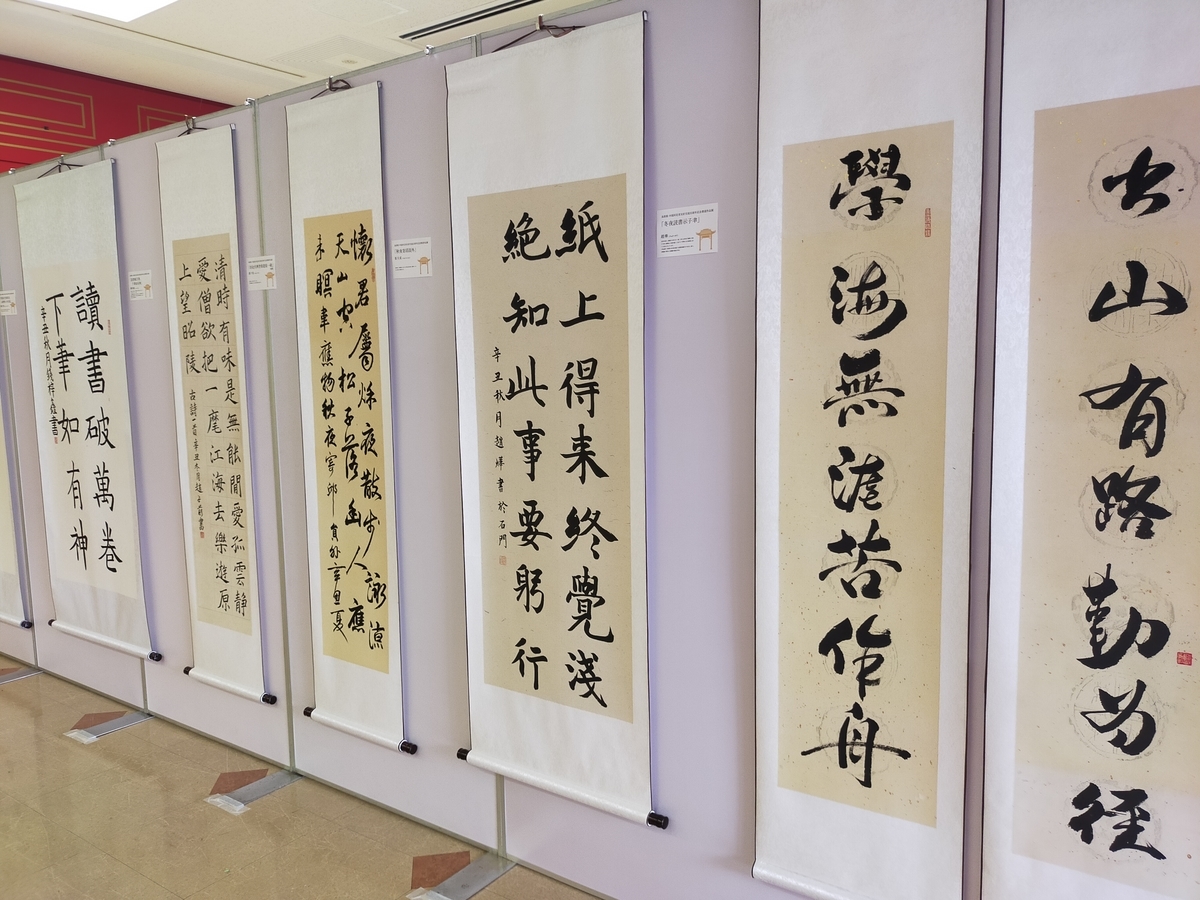 书山有路勤为径
學海無涯苦作舟
「冬夜読書示子聿」
紙上得来終覺淺
絶知此事要躬行
辛丑秋月趙
書於石門
懷君屬秋夜散步詠涼
天山空松子落幽人應
未眠韋應物秋夜寄邱員外辛丑夏
清時有味是無能閒愛孤雲靜
愛僧欲把一麾江海去樂遊原
上望昭陵
古詩一首辛丑冬月趙子
書
讀書破萬卷
下筆如有神
辛丑秋月錢梓
書